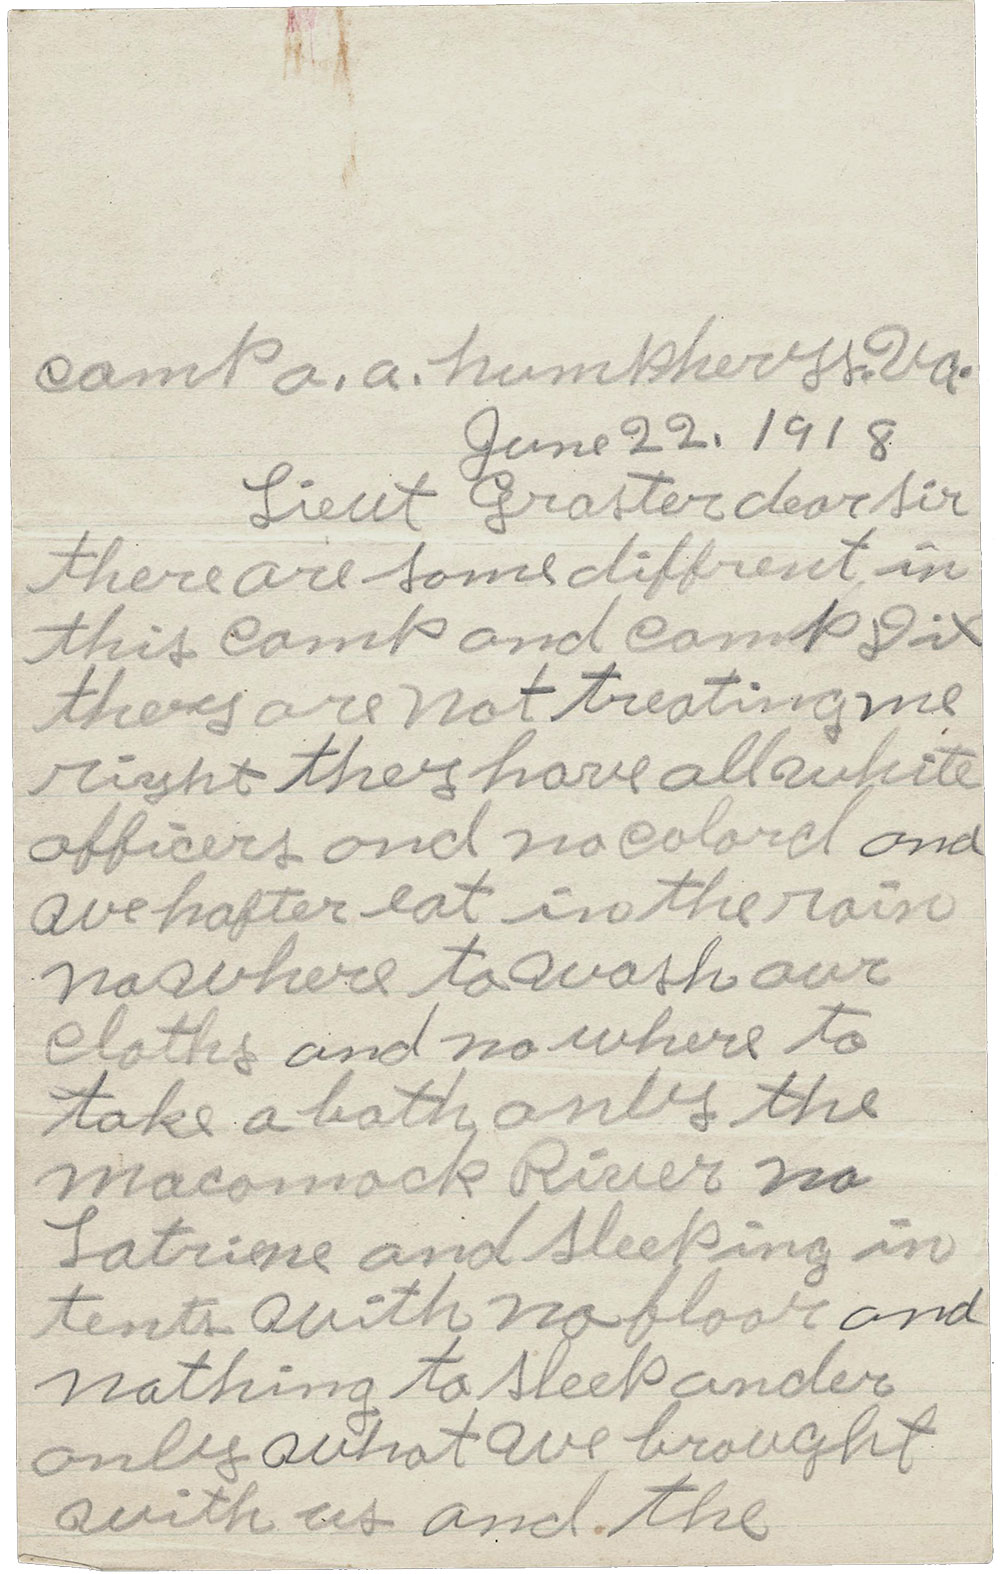 camp a. a. humphervss. Va.
June 22. 1918
Lieut Graster dear sir
there are some diffrent in
this camp and camp Dix
they are not treating me
right they have all white
officers and no colard and
we hafter eat in the rain
no where to wash our
cloths and no where to
take a bath only the
macomock River no
Latriene and sleeping in
tents with no floor and
nothing to sleep ander
only what we brought
with us and the